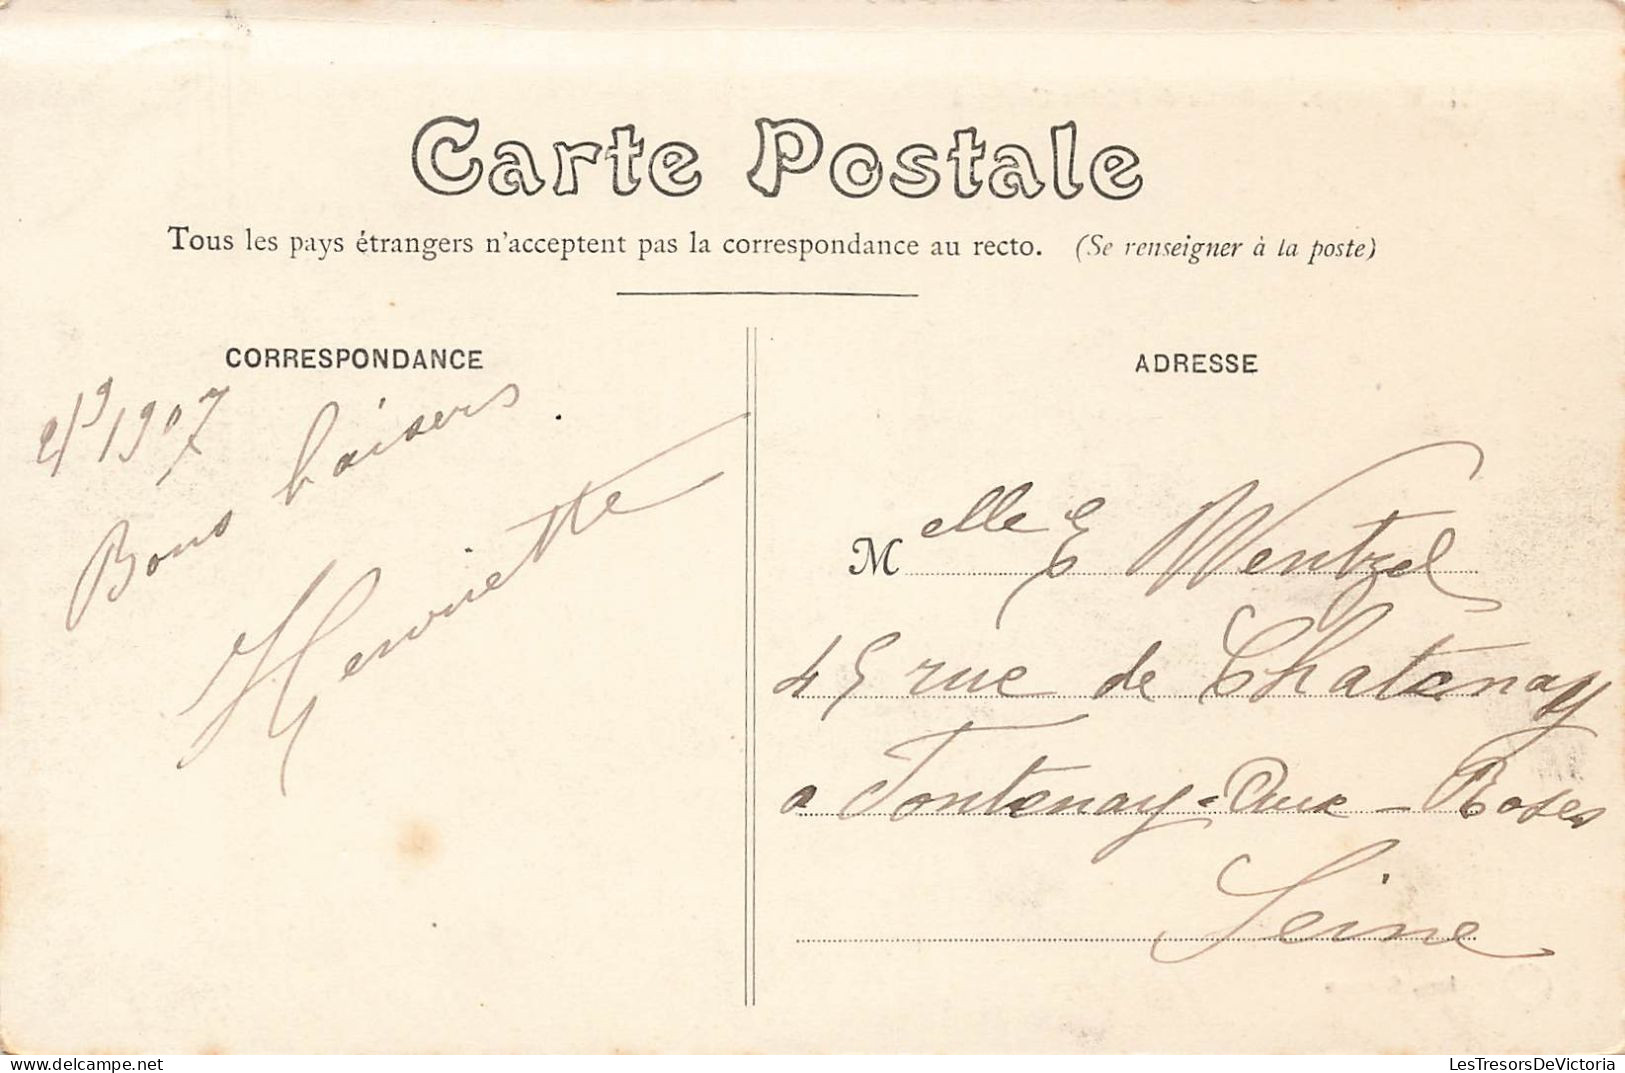 Carte Postale
Tous les pays étrangers n'acceptent pas la correspondance au recto. (Se renseigner à la poste)
CORRESPONDANCE
2/9 1907
Bons baisers
Henriette
ADRESSE
Melle E Wentzel
45 rue de Chatenay
a Fontenay-Aux-Roses
Seine
LesTresorsDeVictoria